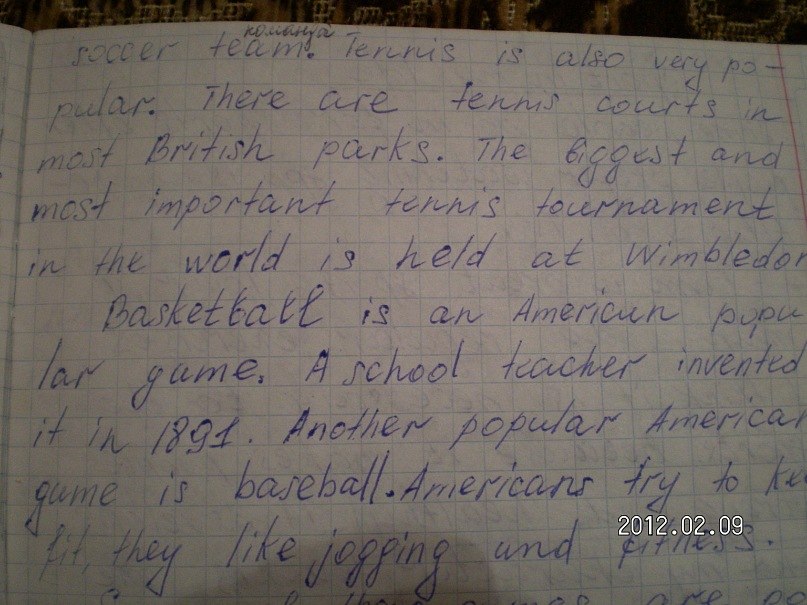 команда
soccer team. Tennis is also very po-
pular. There are tennis courts in
most British parks. The biggest and
most important tennis tournament
in the world is held at Wimbledon
Basketball is an American popu
lar game. A school teacher invented
it in 1891. Another popular American
game is baseball. Americans try to
fit, they like jogging and fitness.
games are
2012.02.09